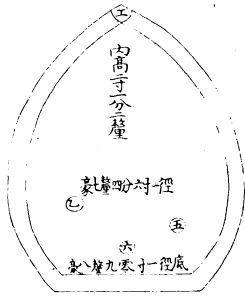 工
内髙二寸一分二釐
徑一寸六分四釐七豪
乙
五
六
底徑一寸零九釐八豪